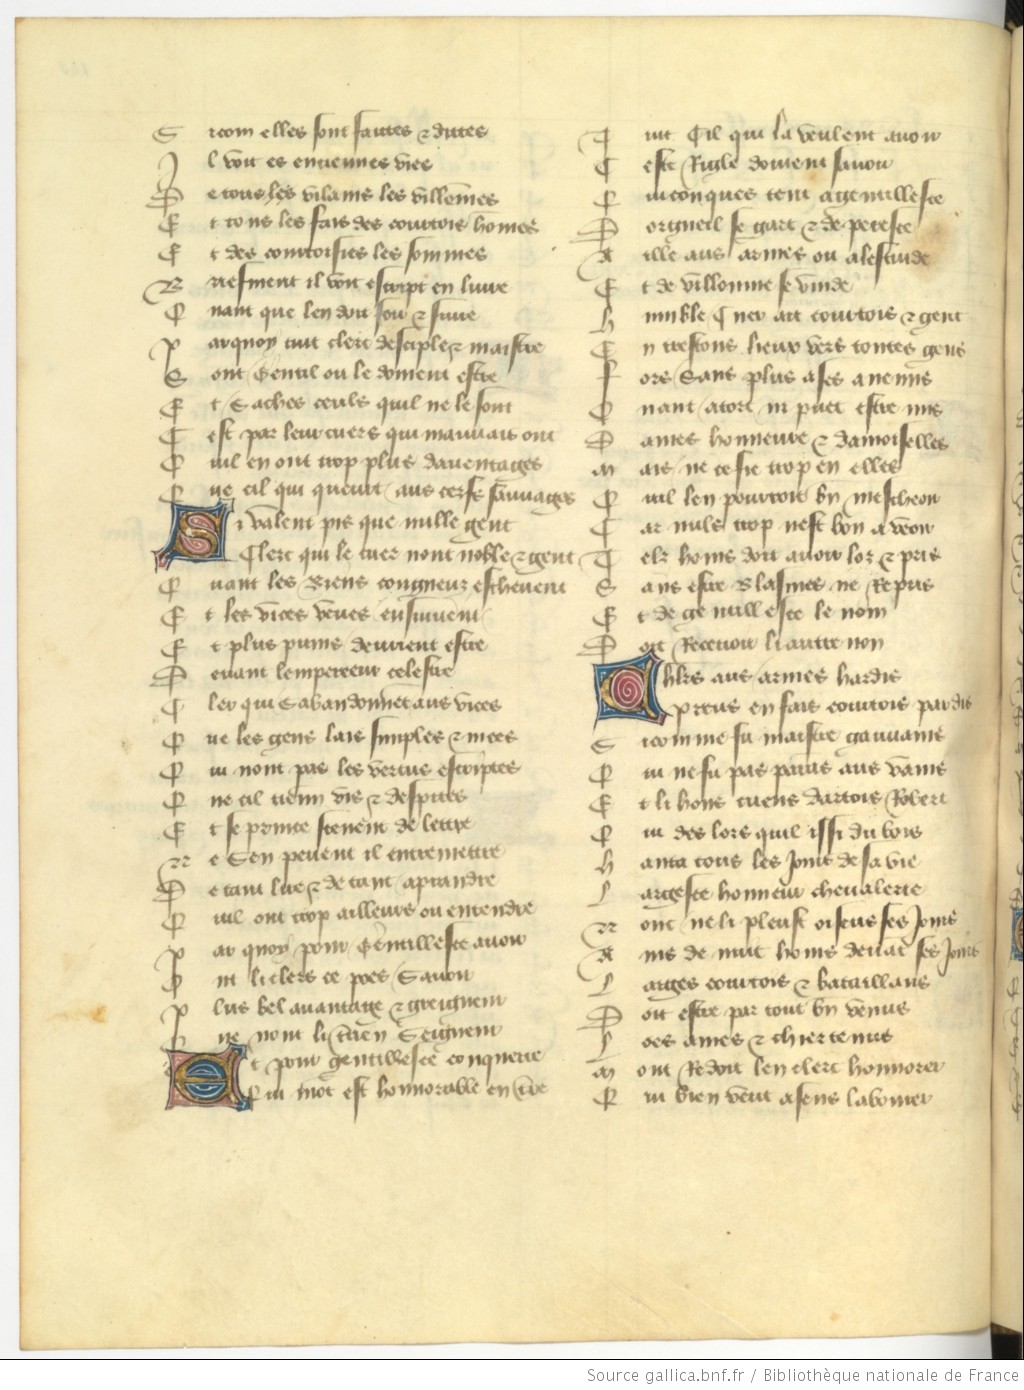 Sicom elles sont faites & dittes
Il voit es enciennes vies
De tous les vilains les villennies
Et tous les fais des courtois homes
Et des courtoisies les sommes
Briefment il voit escript en livre
Quant que len doit foir & suivre
Par quoy tuit clerc desciple & maistre
Sont Gentil ou le doivent estre
Et Saches ceuls quil ne le sont
Cest par leur cuers qui mauvais ont
Quil en ont trop plus davantages
Que cil qui queurt aus cerfs sauvages
Si valent pis que nulle gent
Clerc qui le cuer nont noble & gent
Quant les Biens congneuz eschevent
Et les vices veues ensuivent
Et plus punis devrient estre
Devant lempereur celestre
Clerc qui Sabandonnent aus vices
Que les gens lais simples & nices
Qui nont pas les vertus escriptes
Que cil tienn vis & despites
Et se prince scevent de lettre
Ne Sen pevent il entremettre
De tant lire & de tant aprandre
Quil ont trop ailleurs ou entendre
Par quoy pour Gentillesce avoir
Ont li clers ce poes Savoir
Plus bel avantage & greigneur
Que nont li terrien Seigneur
Et pour gentillesce conquerre
Qui mot est honnorable en terre
Tuit Cil qui la veulent avoir
Ceste Rigle doivent savoir
Quiconques tent a gentillesce
Dorgueil se gart & de peresce
Aille aus armes ou a lestuide
Et de villonnie se vuide
Humble Cuer ait courtois & gent
En trestous lieux vers toutes gens
Fors Sans plus a ses anemis
Quant acort ni puet estre mis
Dames honneure & damoiselles
Mais ne ce fie trop en elles
Quil len pourroit bien mescheoir
Car nuls trop nest bon a veoir
Telz homs doit avoir loz & pris
Sans estre Blasmes ne Repris
Et de gentillesce le nom
Doit Recevoir li autre non
Chevaliers aus armes hardis
Preus en fais courtois par dis
Si comme fu maistre gauvains
Qui ne fu pas parais aus vains
Et li bons cuens dartois Robert
Qui des lors quil issi du bers
Hanta tous les Jours de sa vie
Largesce honneur chevalerie
Nonc ne li pleust oiseus seJours
Ains devint homs devant ses Jours
Larges courtois & bataillans
Doit estre par tout bien venus
Loes ames & chier tenus
Mout Redoit len clerc honnorer
Qui bien veut a sens labourer
Source gallica.bnf.fr / Bibliothèque nationale de France